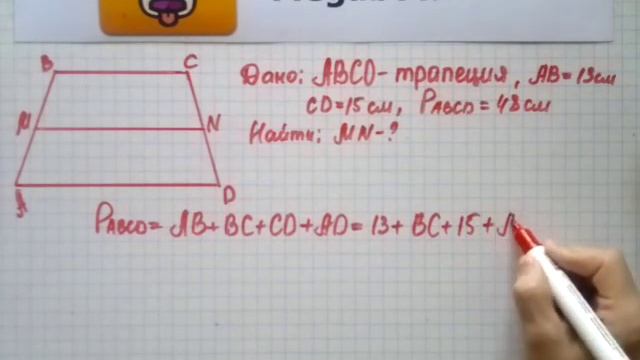 B C
Дано: ABCD-трапеция, AB=13см
CD=15см, PABCD=48см
M N
Найти: MN-?
A D
PABCD= AB+BC+CD+AD= 13+ BC+15+A